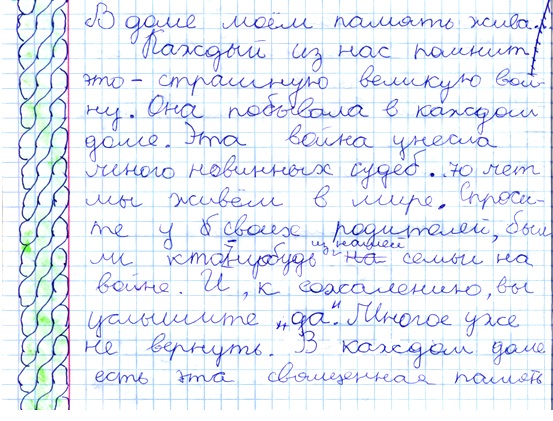 В доме моём память жива...
Каждый из нас помнит
это - страшную великую вой-
ну. Она побывала в каждом
доме. Эта война унесла
много невинных судеб. 70 лет
мы живём в мире. Спроси-
те у своих родителей, был
ли кто-нибудь из нашей семьи на
войне. И, к сожалению, вы
услышите „да". Многое уже
не вернуть. В каждом доме
есть эта священная память